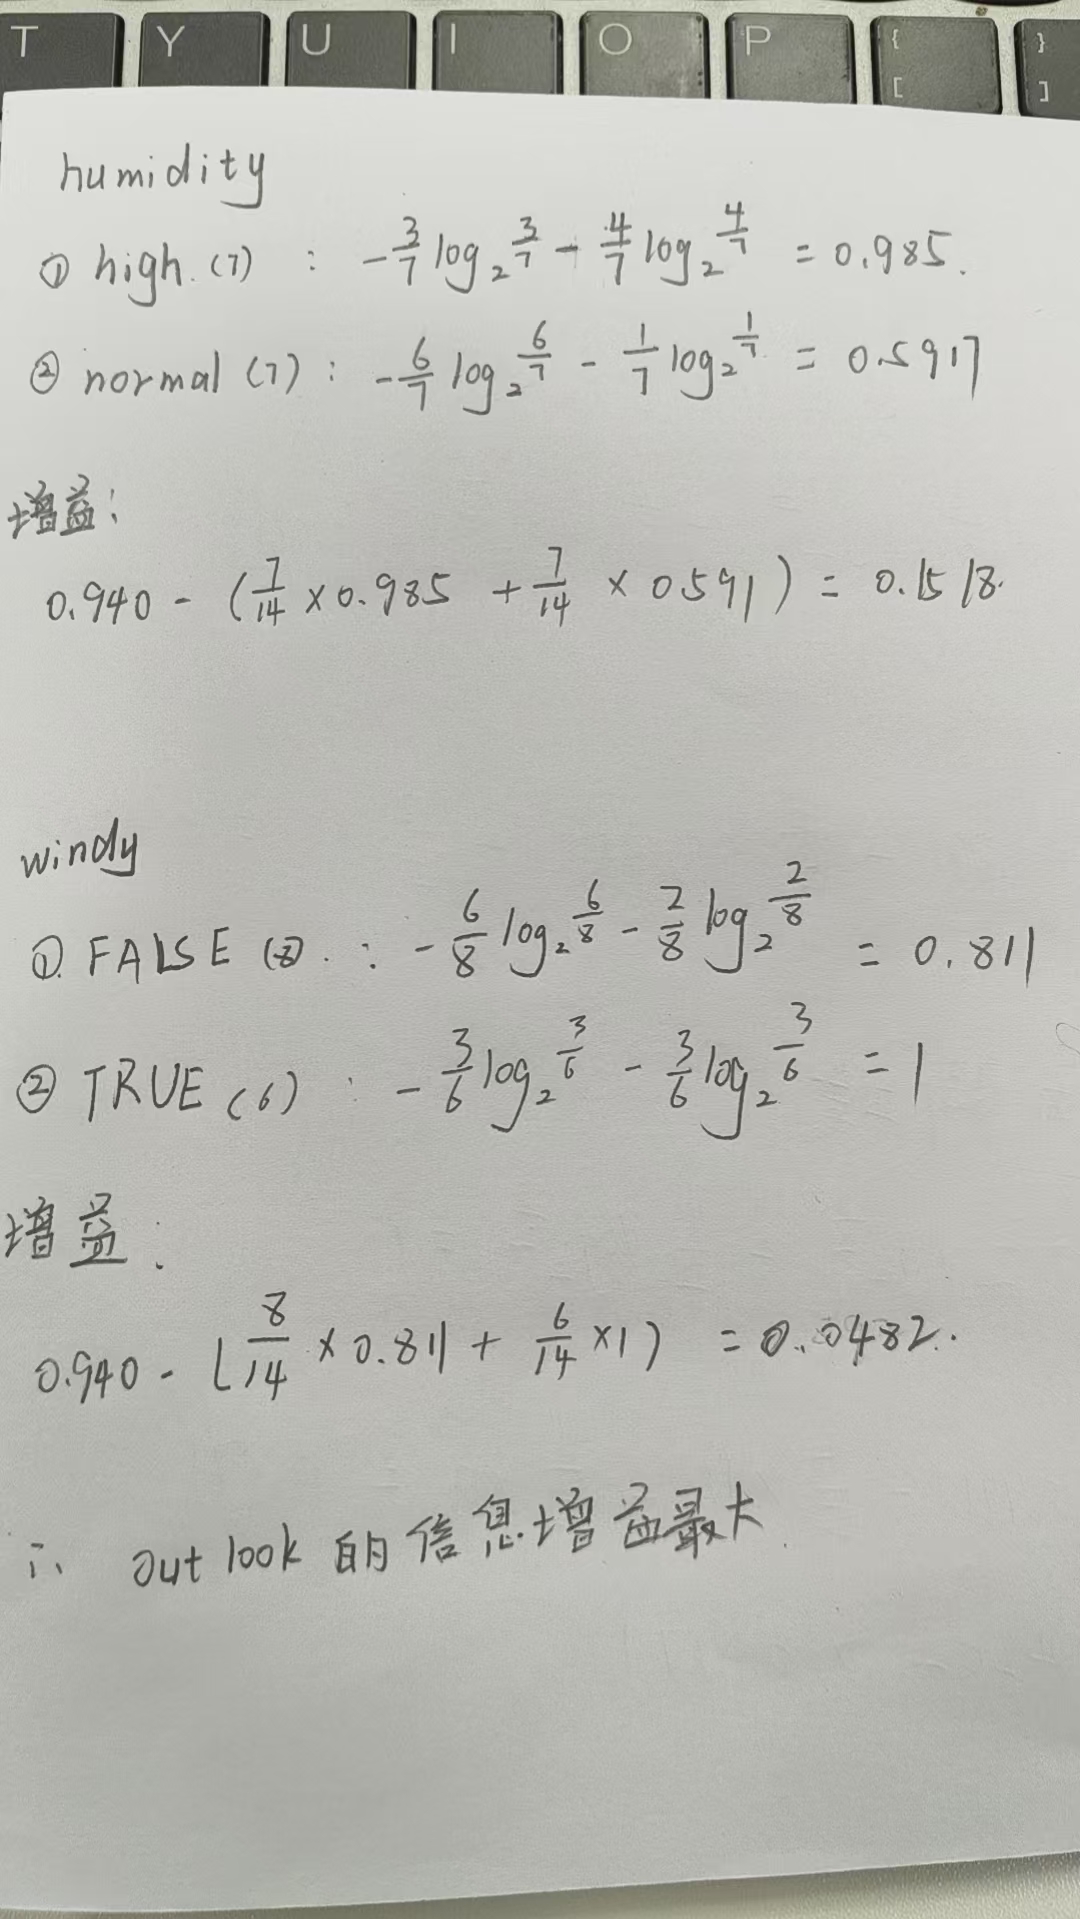 T Y U I O P { [ } ]
humidity
① high (7) : -3/7 log₂ 3/7 - 4/7 log₂ 4/7 = 0.985.
② normal (7) : -6/7 log₂ 6/7 - 1/7 log₂ 1/7 = 0.5917
增益:
0.940 - (7/14 × 0.985 + 7/14 × 0.591) = 0.1518.
windy
① FALSE (8) : -6/8 log₂ 6/8 - 2/8 log₂ 2/8 = 0.811
② TRUE (6) : -3/6 log₂ 3/6 - 3/6 log₂ 3/6 = 1
增益:
0.940 - [8/14 × 0.811 + 6/14 × 1) = 0.0482.
∴ outlook 的信息增益最大.